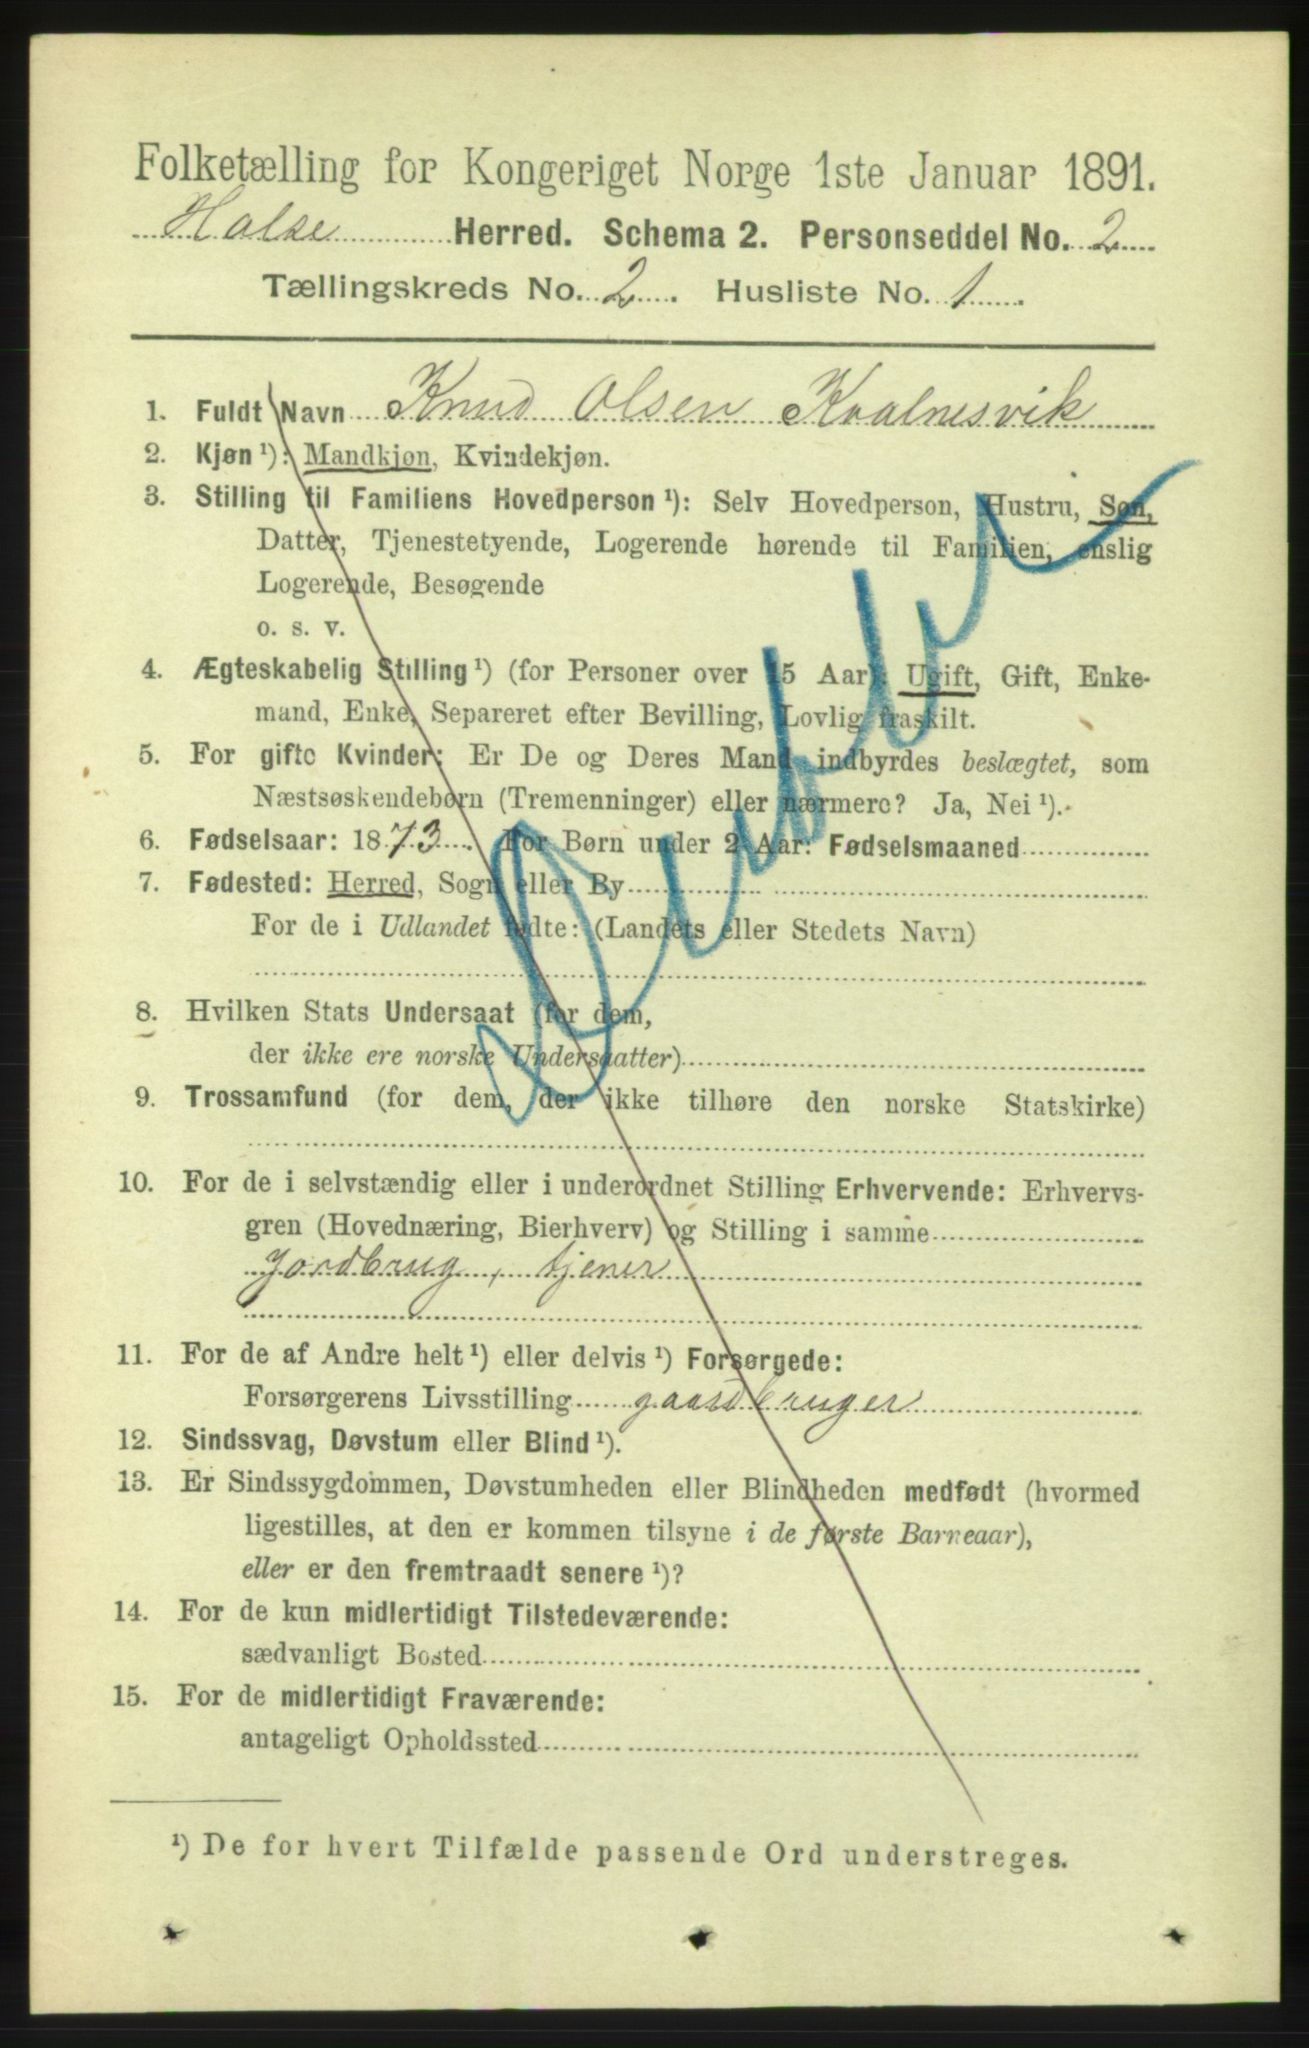 Folketælling for Kongeriget Norge 1ste Januar 1891.
Halse Herred. Schema 2. Personseddel No. 2
Tællingskreds No. 2. Husliste No. 1.
1. Fuldt Navn Knud Olsen Kvalnesvik
2. Kjøn ¹): Mandkjøn, Kvindekjøn.
3. Stilling til Familiens Hovedperson ¹): Selv Hovedperson, Hustru, Søn,
Datter, Tjenestetyende, Logerende hørende til Familien, enslig
Logerende, Besøgende
o. s. v.
4. Ægteskabelig Stilling ¹) (for Personer over 15 Aar): Ugift, Gift, Enke-
mand, Enke, Separeret efter Bevilling, Lovlig fraskilt.
5. For gifte Kvinder: Er De og Deres Mand indbyrdes beslægtet, som
Næstsøskendebørn (Tremenninger) eller nærmere? Ja, Nei ¹).
6. Fødselsaar: 1873. For Børn under 2 Aar: Fødselsmaaned
7. Fødested: Herred, Sogn eller By
For de i Udlandet fødte: (Landets eller Stedets Navn)
8. Hvilken Stats Undersaat (for dem,
der ikke ere norske Undersaatter)
9. Trossamfund (for dem, der ikke tilhøre den norske Statskirke)
10. For de i selvstændig eller i underordnet Stilling Erhvervende: Erhvervs-
gren (Hovednæring, Bierhverv) og Stilling i samme
Jordbrug, tjener
11. For de af Andre helt ¹) eller delvis ¹) Forsørgede:
Forsørgerens Livsstilling gaardbruger
12. Sindssvag, Døvstum eller Blind ¹).
13. Er Sindssygdommen, Døvstumheden eller Blindheden medfødt (hvormed
ligestilles, at den er kommen tilsyne i de første Barneaar),
eller er den fremtraadt senere ¹)?
14. For de kun midlertidigt Tilstedeværende:
sædvanligt Bosted
15. For de midlertidigt Fraværende:
antageligt Opholdssted
¹) De for hvert Tilfælde passende Ord understreges.